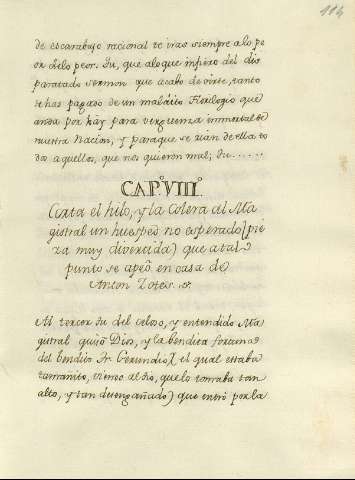 114
de escarabajo racional te vras siempre a lo pe
or de lo peor. Tu, que a lo que infiero del dis
paratado sermon que acabo de oirte, tanto
te has pagado de un maldito Florilogio que
anda por hay para verguenza inmortal de
nuestra Nacion, y para que se rian de ella to
dos aquellos, que nos quieren mal; tu......
CAP.º VIII.º
Corta el hilo, y la Colera al Ma
gistral un huesped no esperado (pie
za muy divertida) que a tal
punto se apeó en casa de
Anton Zotes.
Al tercer tu del celoso, y entendido Ma
gistral quiso Dios, y la bendita fortuna
del bendito Fr. Gerundio (el qual estaba
tamañito, viendo al tio, que lo tomaba tan
alto, y tan desengañado) que entró por la